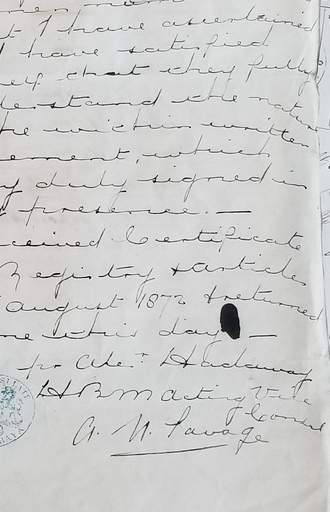 t I have ascertained
I have satisfied
elf that they fully
derstand the nature
he within written
eement, which
y duly signed in
presence. —
ceived Certificate
Registry & Articles
August 1872 & returned
me this day —
pr Alexr Hadaway
H B M Acting Vice
Consul
A. N. Savage